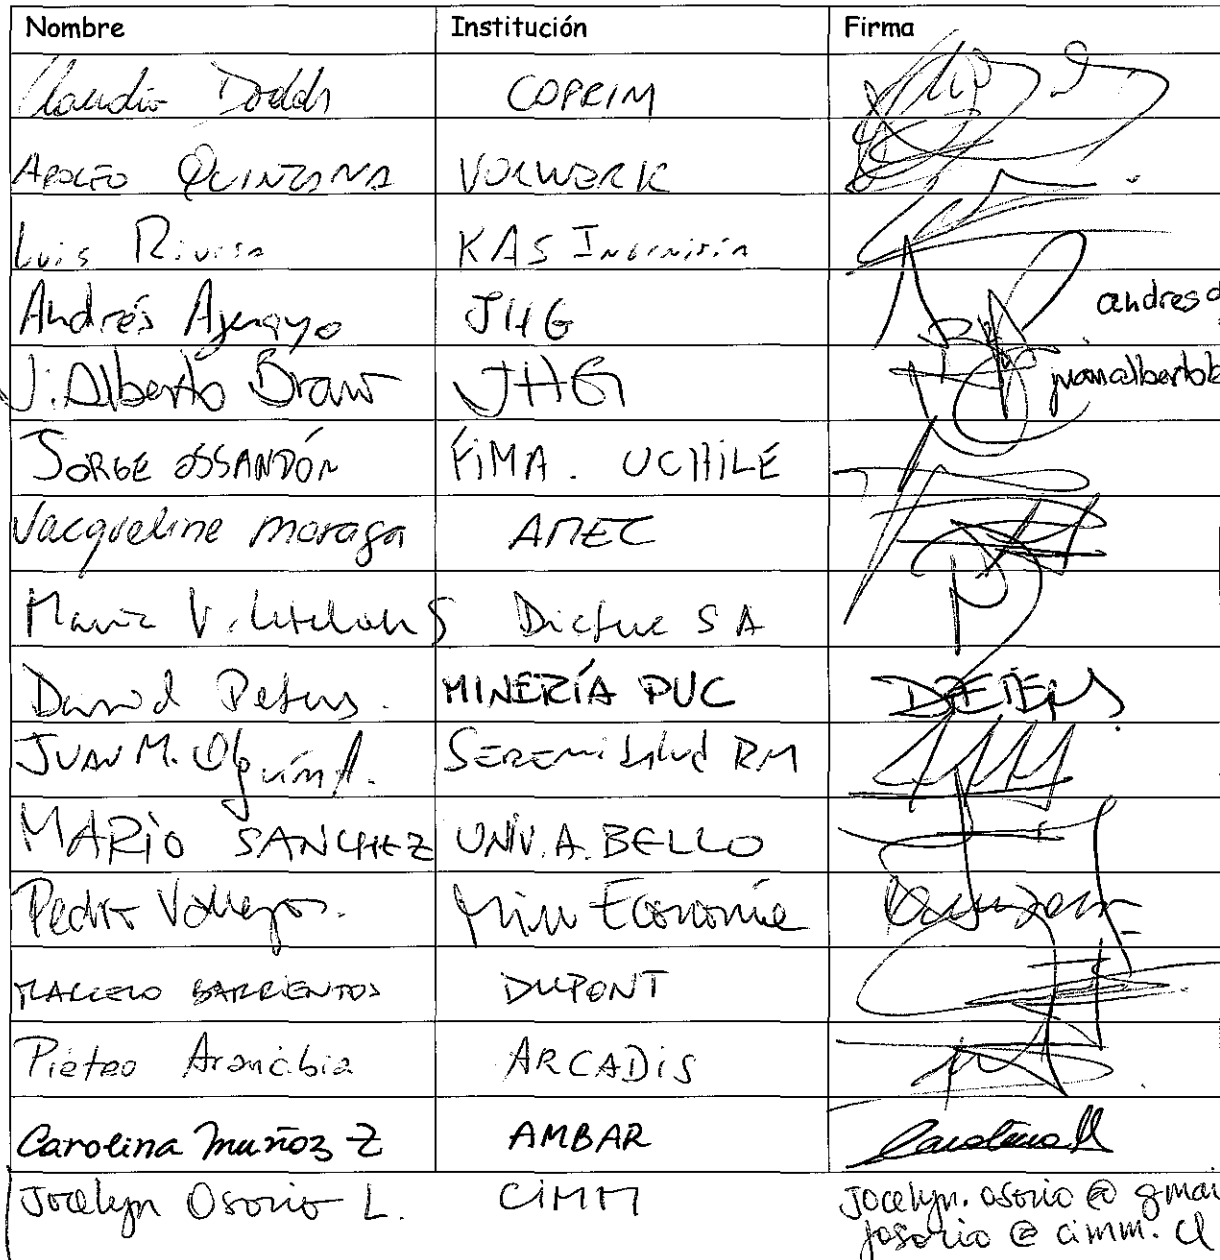 Nombre Institución Firma
Claudio Dodds COPRIM
QUINTANA VOLWERK
Luis Rivera KAS Ingeniería
Andrés Ajenayo JHG andres
J. Alberto Bravo JHG juanalbertob
JORGE OSSANDÓN FIMA. UCHILE
Jacqueline Moraga AMEC
Maria V. Dictuc SA
David Peters. MINERÍA PUC DPETERS.
JUAN M. Olguín A. SEREMI Salud RM
MARIO SANCHEZ UNIV. A. BELLO
Pedro Vallejos. Min Economía
MARCELO BARRIENTOS DUPONT
Pietro Arancibia ARCADIS
Carolina Muñoz Z AMBAR Carolina M
Jocelyn Osorio L. CIMM Jocelyn.osorio@gmai
josorio@cimm.cl